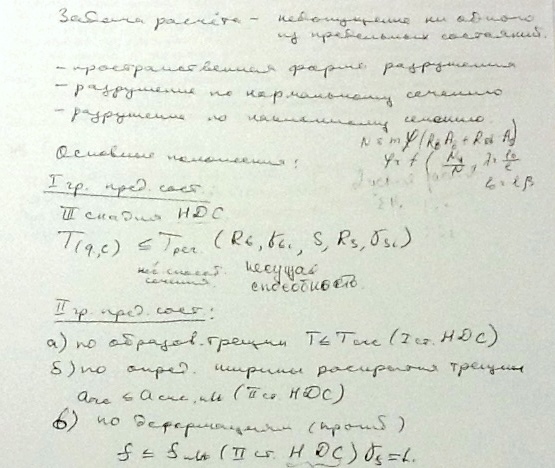 Задача расчёта – недопущение ни одного
из предельных состояний.
– пространственная форма разрушения
– разрушение по нормальному сечению
– разрушение по наклонному сечению.
N = mφ(RбAб + RsA
Основные положения:
φ = f(
I гр. пред. сост.
III стадия НДС
T(q,c) ≤ Tсеч. (Rб, γбi, S, Rs, γsi)
сечения.
несущая
способность.
II гр. пред. сост:
а) по образов. трещин T ≤ Tcrc (I ст. НДС)
б) по опред. ширины раскрытия трещин
acrc ≤ acrc,ult (II ст. НДС)
в) по деформациям (прогиб)
f ≤ fult (II ст. НДС) γs = 1.